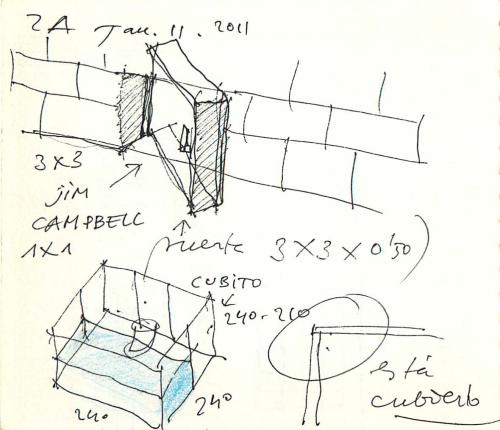 2A Jan. 11. 2011
3x3
jim
CAMPBELL
1x1
puerta 3x3x0'50
CUBITO
240-210
240
240
está
cubierto